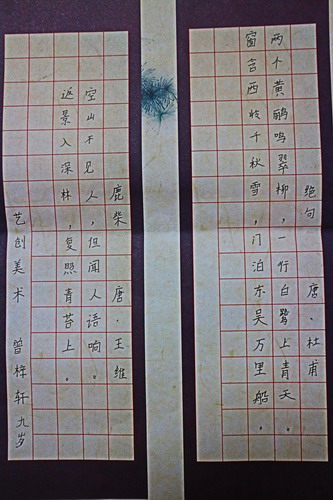 绝句 唐·杜甫
两个黄鹂鸣翠柳，一行白鹭上青天。
窗含西岭千秋雪，门泊东吴万里船。
鹿柴 唐·王维
空山不见人，但闻人语响。
返景入深林，复照青苔上。
艺创美术 曾梓轩九岁